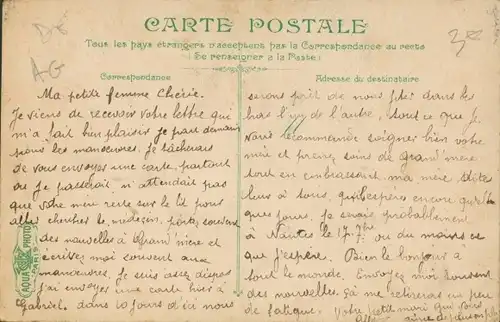 De
AG
3,22
CARTE POSTALE
Tous les pays étrangers n'acceptent pas la Correspondance au recto
(Se renseigner à la Poste)
Correspondance
Adresse du destinataire
Ma petite femme Chérie.
Je viens de recevoir votre lettre qui
m'a fait bien plaisir Je part demain
pour les manœuvres. Je tâcherai
de vous envoyer une carte, partout
ou je passerai, n'attendait pas
que votre mère reste sur le lit pour
aller chercher le médecin. portez souvent
des nouvelles à Grand'mère et
écrivez moi souvent aux
manœuvres. Je suis assez dispos
j'ai envoyer une carte hier à
Gabriel. dans 10 jours d'ici nous
serons près de nous jeter dans les
bras l'un de l'autre, tous ce que je
vous recommande soigner bien votre
mère et prenez soins de Grand'mère
tout en embrassant ma mère
leur à tous, qu'ils espère encore
que jours. Je serais probablement
à Nantes le 17 7bre ou du moins ce
que j'espère. Bien le bonjour à
tout le monde. Envoyez moi souvent
des nouvelles çà me retirera un peu
de fatigue. Votre petit mari qui
PHOTO
PARIS